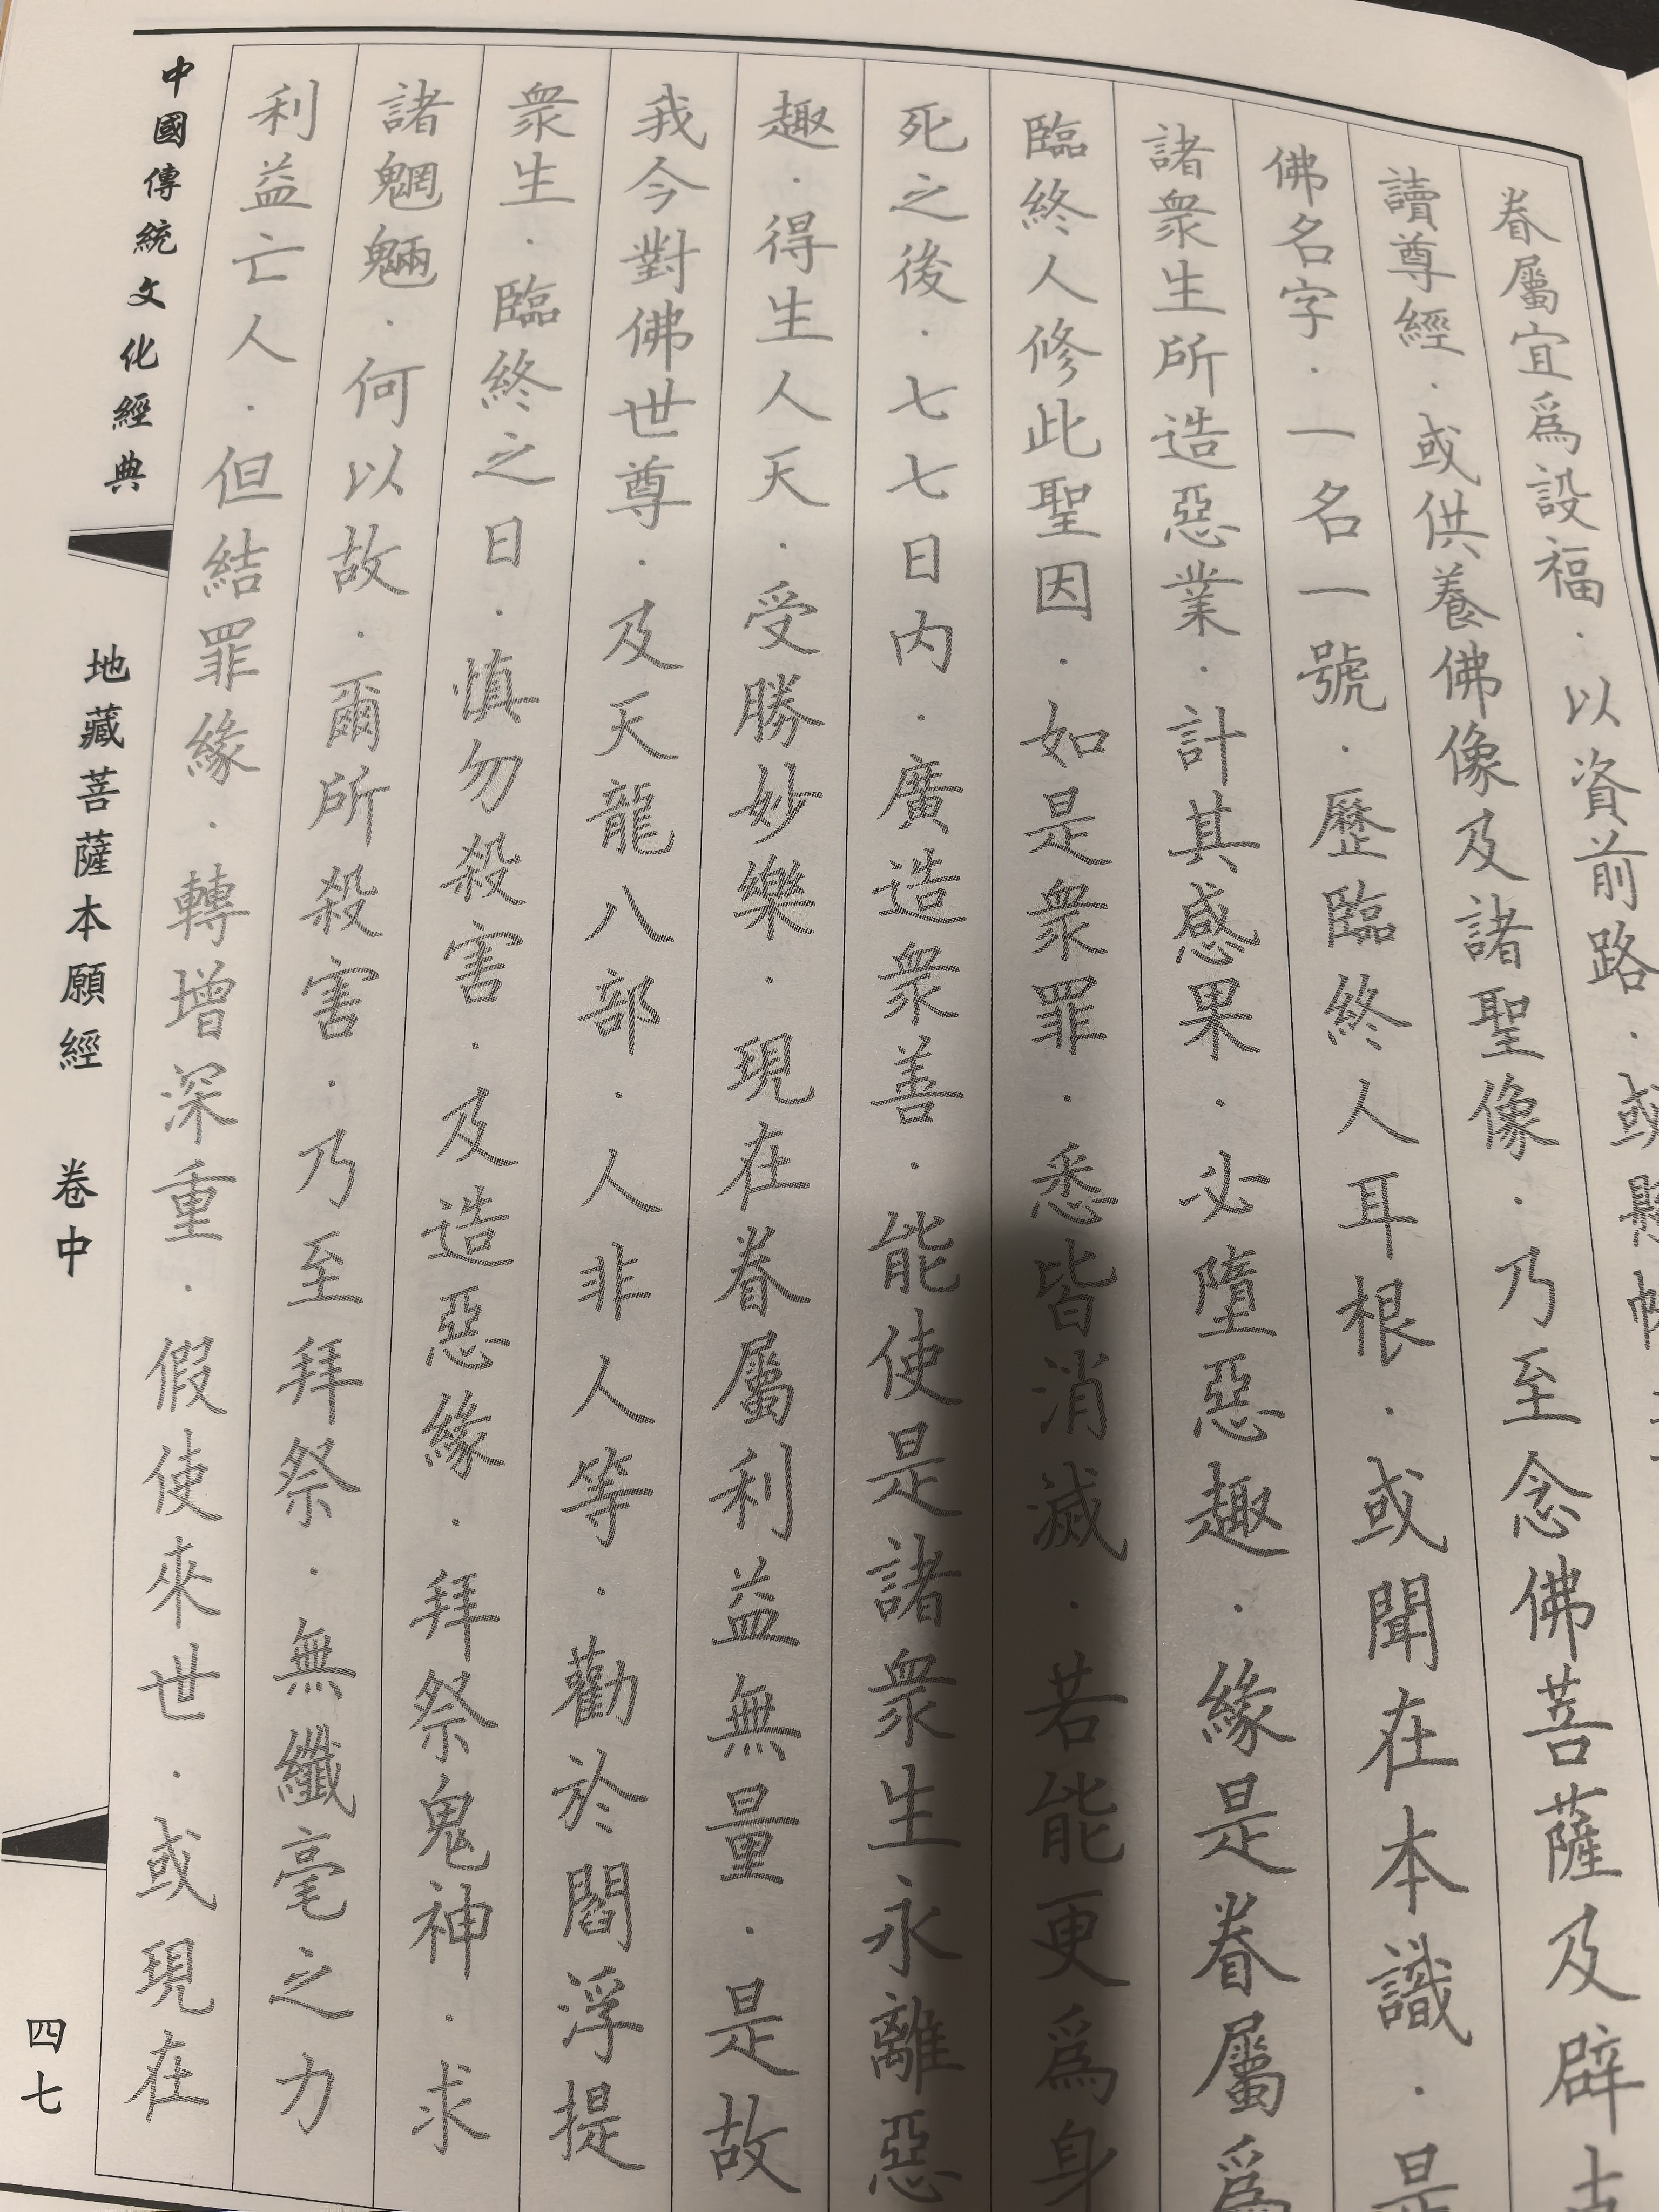 眷屬宜爲設福．以資前路．或懸
讀尊經．或供養佛像及諸聖像．乃至念佛菩薩及辟
佛名字．一名一號．歷臨終人耳根．或聞在本識．是
諸衆生所造惡業．計其感果．必墮惡趣．緣是眷屬爲
臨終人修此聖因．如是衆罪．悉皆消滅．若能更爲身
死之後．七七日內．廣造衆善．能使是諸衆生永離惡
趣．得生人天．受勝妙樂．現在眷屬利益無量．是故
我今對佛世尊．及天龍八部．人非人等．勸於閻浮提
衆生．臨終之日．慎勿殺害．及造惡緣．拜祭鬼神．求
諸魍魎．何以故．爾所殺害．乃至拜祭．無纖毫之力
利益亡人．但結罪緣．轉增深重．假使來世．或現在
中國傳統文化經典
地藏菩薩本願經 卷中
四七